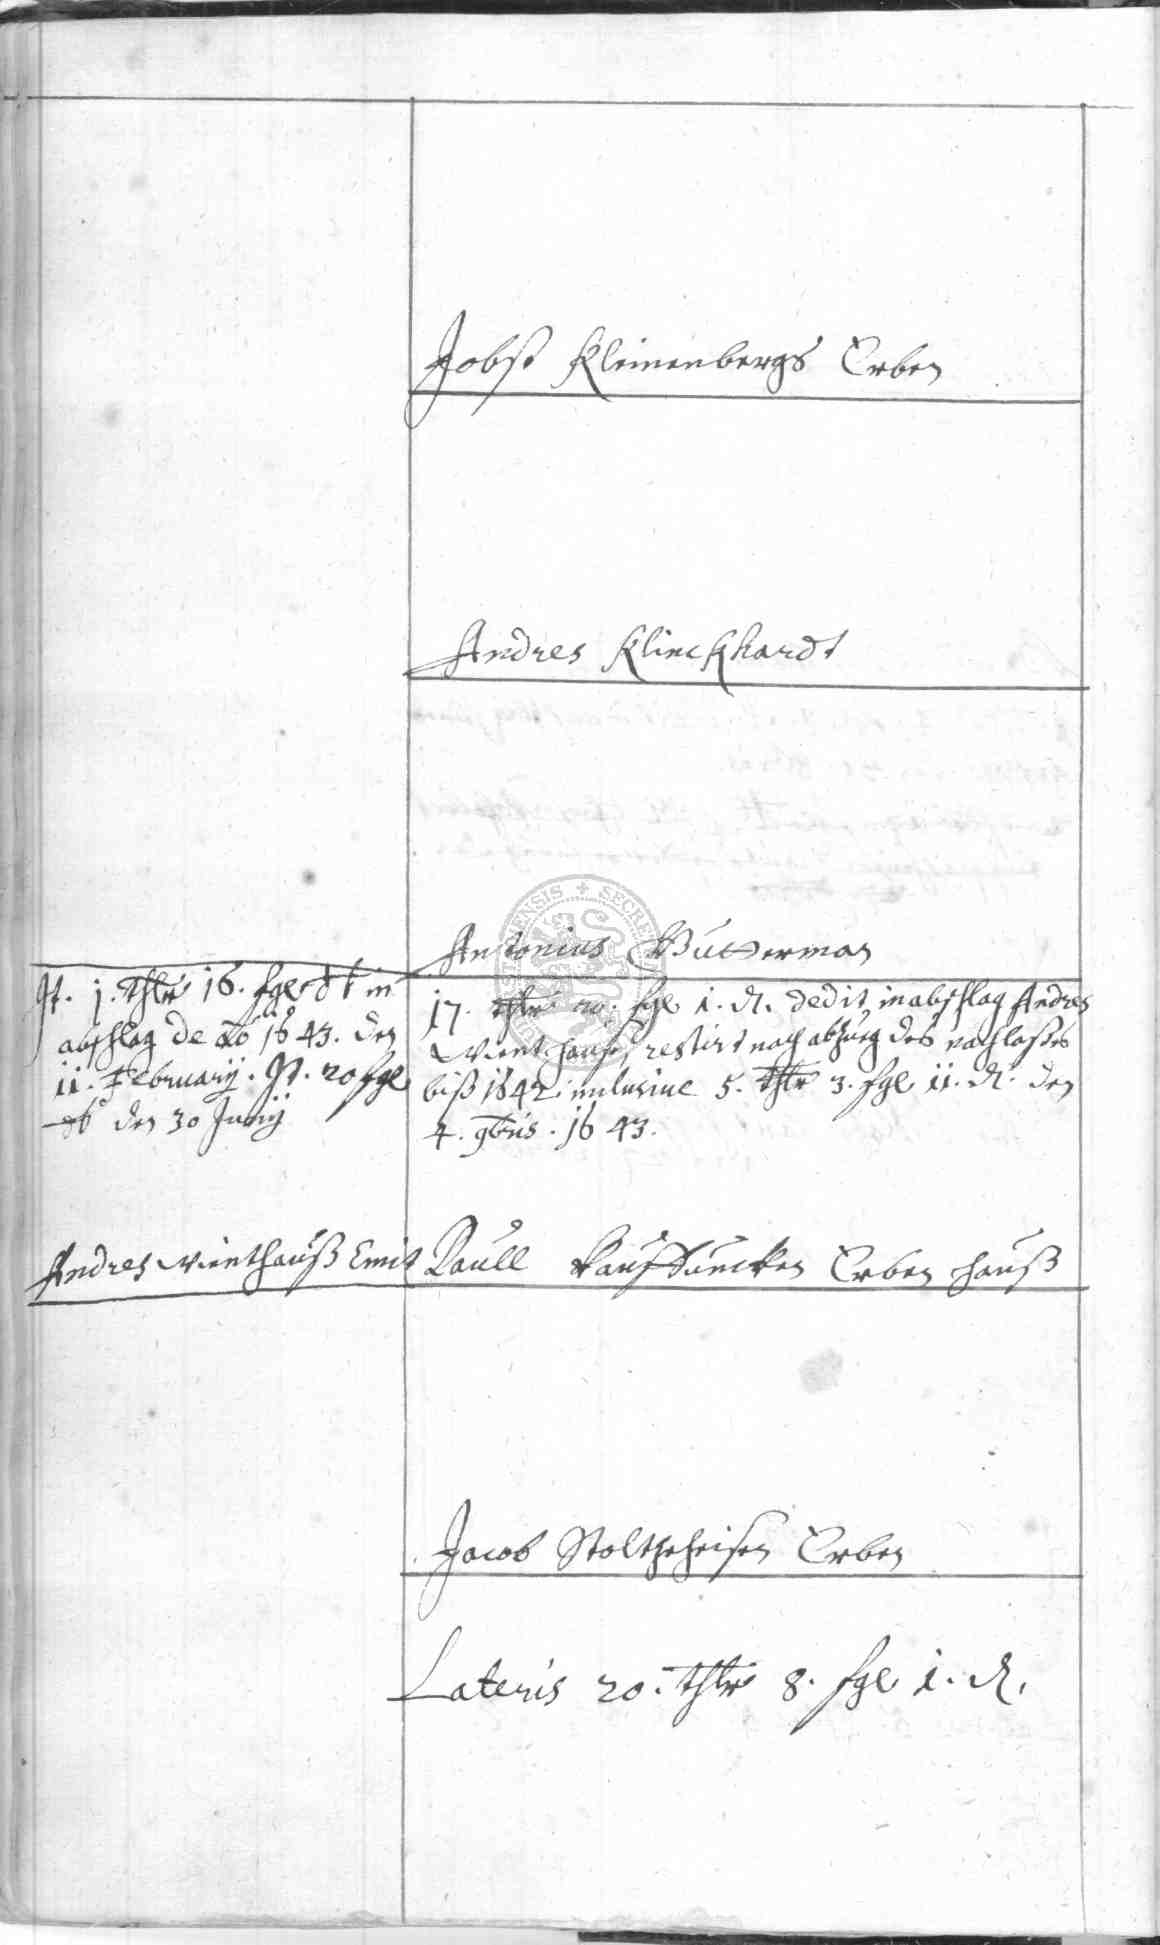 Jobst Kleinenbergs Erben
Andres Klinckhardt
Antonius Butterman
It. j. thlr 16. sgl dt in
abschlag de ao 1643. den
ii. Februarij. It. 20 sgl
dt den 30 Junij
17. thlr 20. sgl i. d. dedit in abschlag Andres
Wienthauß, restirt nach abzug des nachlasses
biß 1642 inclusive 5. thlr 3. sgl ii. d. den
4. 9bris. 1643.
Andres Wienthauß Emit
Paull Erben Hauß
Jacob Erben
Lateris 20. thlr 8. sgl i. d.